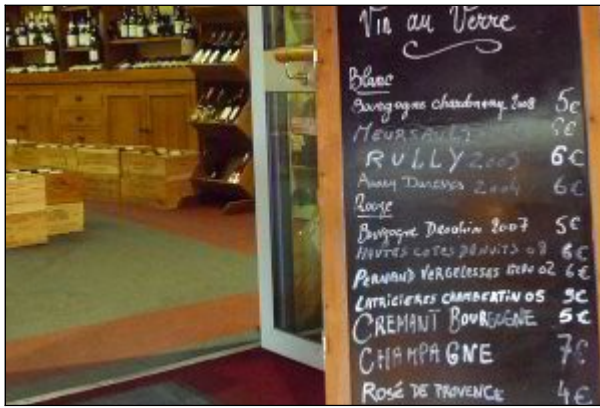 Vin au Verre
Blanc
Bourgogne chardonnay 2008 5€
MEURSAULT 6€
RULLY 2005 6€
Auxey Duresses 2004 6€
Rouge
Bourgogne Drouhin 2007 5€
HAUTES COTES DE NUITS 08 6€
PERNAND VERGELESSES 02 6€
LATRICIERES CHAMBERTIN 05 9€
CREMANT BOURGOGNE 5€
CHAMPAGNE 7€
ROSÉ DE PROVENCE 4€